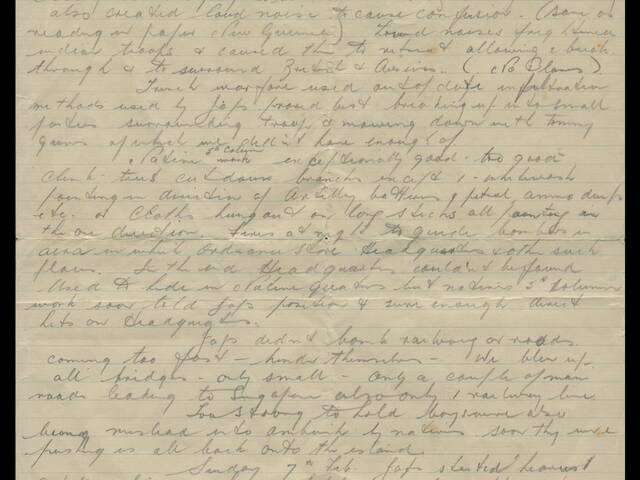 also created loud noise to cause confusion. (Same as
reading in paper New Guinea) Loud noises frightened
indian troops & caused them to retire & allowing a break
through & to surround British & Aussies.. (. No Planes)
Trench warfare used out of date infiltration
methods used by Japs proved best breaking up into small
parties surrounding troops & mowing down with tommy
guns of which we didn't have enough of
Native 5th Column work exceptionally good - too good
Climb trees cut down branches except 1 - whitewash
pointing in direction of Artillery batteries petrol ammo dumps
etc. or Cloths hung out on long sticks all pointing in
the one direction. Fires at night to guide bombers in
area in which Ordnance Store Headquarters & other such
places. In the end Headquarters couldn't be found
Used to hide in Native Quarters but natives 5th Column
work soon told Japs position & sure enough direct
hits on Headquarters.
Japs didn't bomb railway or roads
coming too fast - hinder themselves - We blew up
all bridges - only small - Only a couple of main
roads leading to Singapore also only 1 railway line
Too strong to hold boys were also
being mislead into ambush by natives soon they were
pushing us all back onto the island.
Sunday 7th Feb. Japs started heaviest